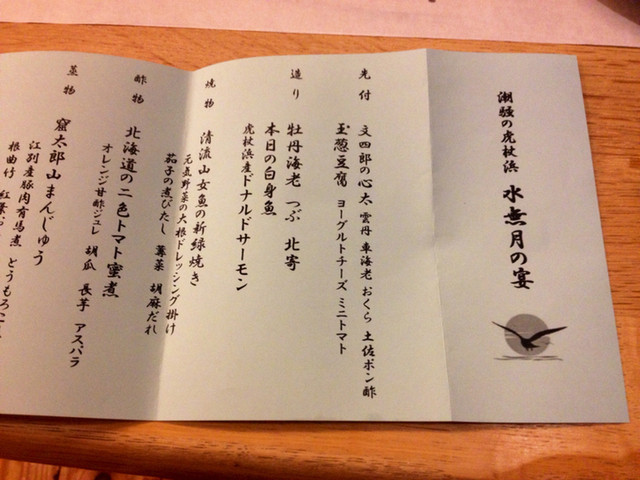 潮騒の虎杖浜 水無月の宴
先付
文四郎の心太 雲丹 車海老 おくら 土佐ポン酢
玉葱豆腐 ヨーグルトチーズ ミニトマト
造り
牡丹海老 つぶ 北寄
本日の白身魚
虎杖浜産ドナルドサーモン
焼物
清流山女魚の新緑焼き
元気野菜の大根ドレッシング掛け
茄子の煮びたし 蓴菜 胡麻だれ
酢物
北海道の二色トマト蜜煮
オレンジ甘酢ジュレ 胡瓜 長芋 アスパラ
蒸物
窟太郎山まんじゅう
江別産豚肉有馬煮 とうもろこ
根曲竹 紅葉お